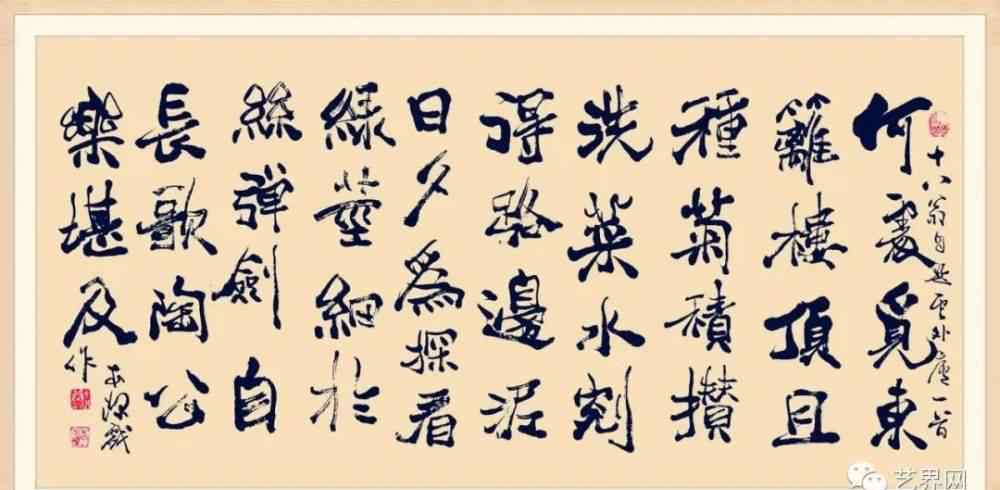 十八翁自外廬一首
何處覓東
籬樓頂且
種菊積攢
洗菜水剜
得路邊泥
日夕為探看
綠莖細於
絲彈劍自
長歌陶公
樂堪及
戲
作
艺界网